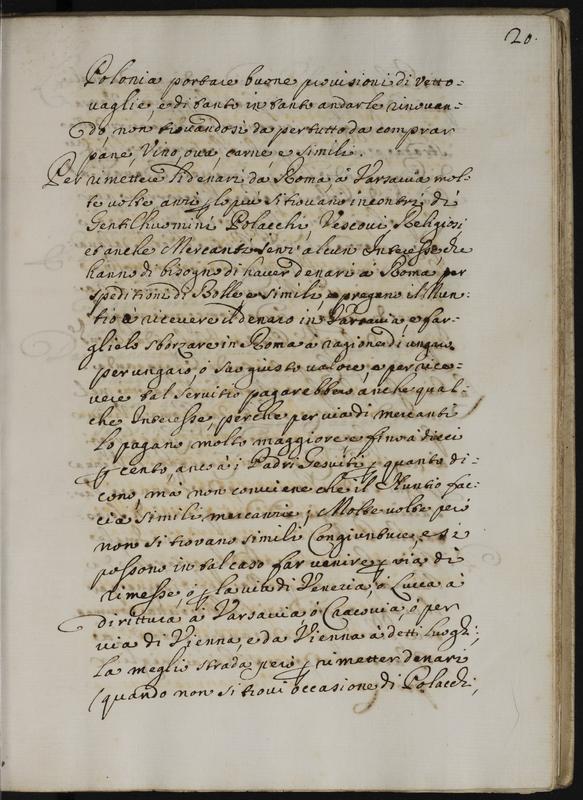 20.
Polonia portare buone provisioni di vetto=
vaglie, e di tanto in tanto andarle rinovan=
do, non trovandosi da per tutto da comprar
pane, Vino, ova, carne e simili.
Per rimettere li denari da Roma, à Varsavia mol=
te volte anzi p lo più si trovano incontri, di
Gentilhuomini Polacchi, Vescovi, Religiosi
et anche Mercanti senz'alcun Interesse, che
hanno di bisogno di haver denari à Roma, per
speditioni di Bolle, e simili, e pregano il Nun=
tio a ricevere il denaro in Varsavia, e far=
glielo sborzare in Roma a ragione di ungaro
per ungaro, ò suo giusto valore, e per rice=
vere tal servitio pagarebbero anche qual=
che Interesse, perche per via di mercanti
lo pagano molto maggiore e fino à dieci
p cento, anco à i Padri Gesuiti p quanto di=
cono, mà non conviene che il Nuntio fac=
cia simili mercannie; Molte volte però
non si trovano simili Congiunture, e si
possono in tal caso far venire p via di
rimesse, ò p la via di Venezia, ò Lucca a
dirittura à Varsavia, ò Cracovia, ò per
via di Vienna, e da Vienna à detti luoghi;
la meglio strada però p rimetter denari
(quando non si trovi occasione di Polacchi,